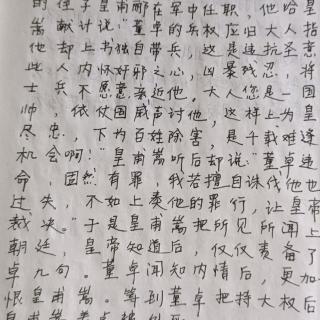 的侄子皇甫郦在军中任职，他给皇
嵩献计说："董卓的兵权应归大人指
他却上书独自带兵，这是违抗圣意
此人内怀奸邪之心，凶暴残忍，将
士兵不愿意亲近他。大人您是一国
帅，依仗国威声讨他，这样上为皇
尽忠，下为百姓除害，是千载难逢
机会啊！"皇甫嵩听后却说："董卓违
命，固然有罪，我若擅自诛伐他也
过失，不如上奏他的罪行，让皇帝
裁决。"于是皇甫嵩把所见所闻上
朝廷，皇帝知道后，仅仅责备了
卓几句。董卓闻知内情后，更加
恨皇甫嵩。等到董卓把持大权后